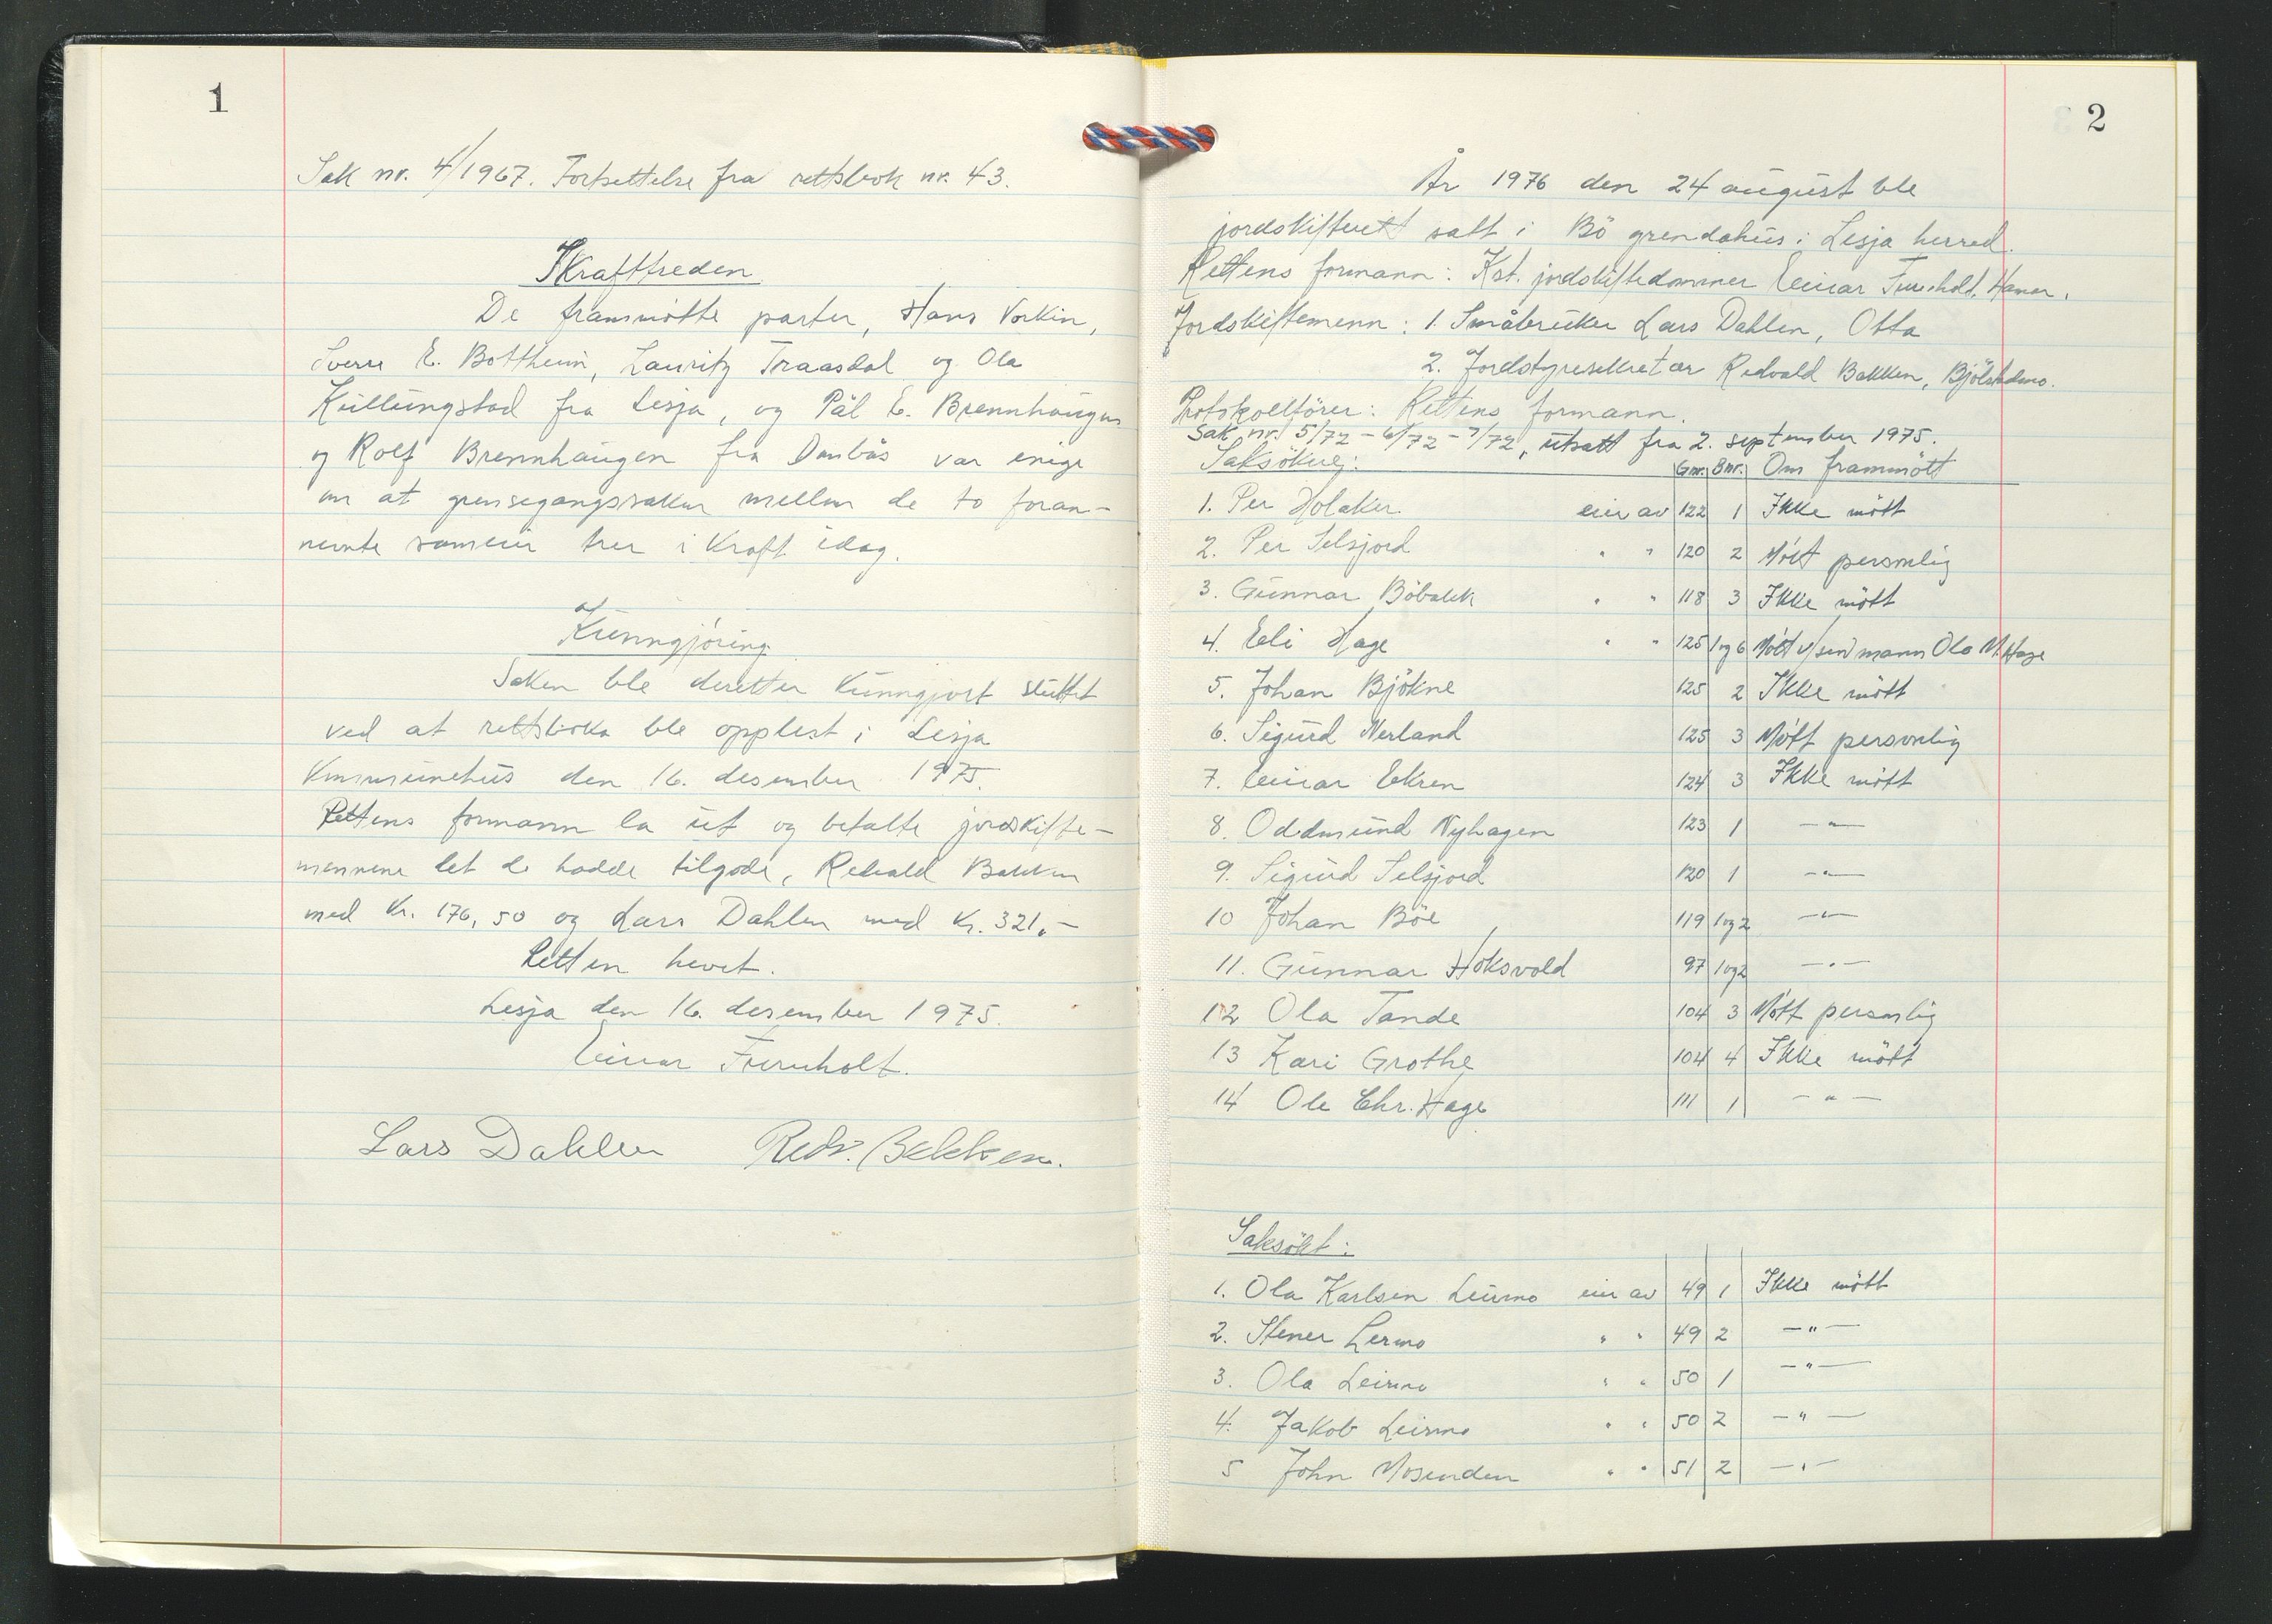 1
Sak nr. 4/1967. Fortsettelse fra rettsbok nr. 43.
Ikrafttreden
De frammötte parter, Hans Vorkin,
Sverre E. Bottheim, Lauritz Traasdal og Ola
Kullungstad fra Lesja, og Pål E. Brennhaugen
og Rolf Brennhaugen fra Dombås var enige
om at grensegangssaken mellom de to foran-
nevnte sameier trer i kraft idag.
Kunngjöring
Saken ble deretter kunngjort sluttet
ved at rettsboka ble opplest i Lesja
kommunehus den 16. desember 1975.
Rettens formann la ut og betalte jordskifte-
mennene det de hadde tilgode, Redvald Bakken
med kr. 176,50 og Lars Dahlen med kr. 321,-
Retten hevet.
Lesja den 16. desember 1975.
Einar Furuholt.
Lars Dahlen Redv. Bakken.
2
År 1976 den 24 august ble
jordskifterett satt i Bö grendahus i Lesja herred.
Rettens formann: Kst. jordskiftedommer Einar Furuholt, Hamar.
Jordskiftemenn: 1. Småbruker Lars Dahlen, Otta
2. Jordstyresekretær Redvald Bakken,
Protokollförer: Rettens formann.
Sak nr. 5/72 - 6/72 - 7/72, utsatt fra 2. september 1975.
Saksökere: Gnr. Bnr. Om frammött
1. Per Holaker eier av 122 1 Ikke mött
2. Per Selsjord " " 120 2 Mött personlig
3. Gunnar Böbakk " " 118 3 Ikke mött
4. Eli Hage " " 125 1 og 6 Mött v/sin mann Ola M. Hage
5. Johan Björkne 125 2 Ikke mött
6. Sigurd Nerland 125 3 Mött personlig
7. Einar Ekren 124 3 Ikke mött
8. Oddmund Nyhagen 123 1 -"-
9. Sigurd Selsjord 120 1 -"-
10 Johan Böe 119 1 og 2 -"-
11. Gunnar Hoksvold 97 1 og 2 -"-
12 Ola Tande 104 3 Mött personlig
13 Kari Grothe 104 4 Ikke mött
14 Ole Chr. Hage 111 1 -"-
Saksökt:
1. Ola Karlsen Leirmo eier av 49 1 Ikke mött
2. Stener Lermo " " 49 2 -"-
3. Ola Leirmo " " 50 1 -"-
4. Jakob Leirmo " " 50 2 -"-
5 John Mosenden " " 51 2 -"-